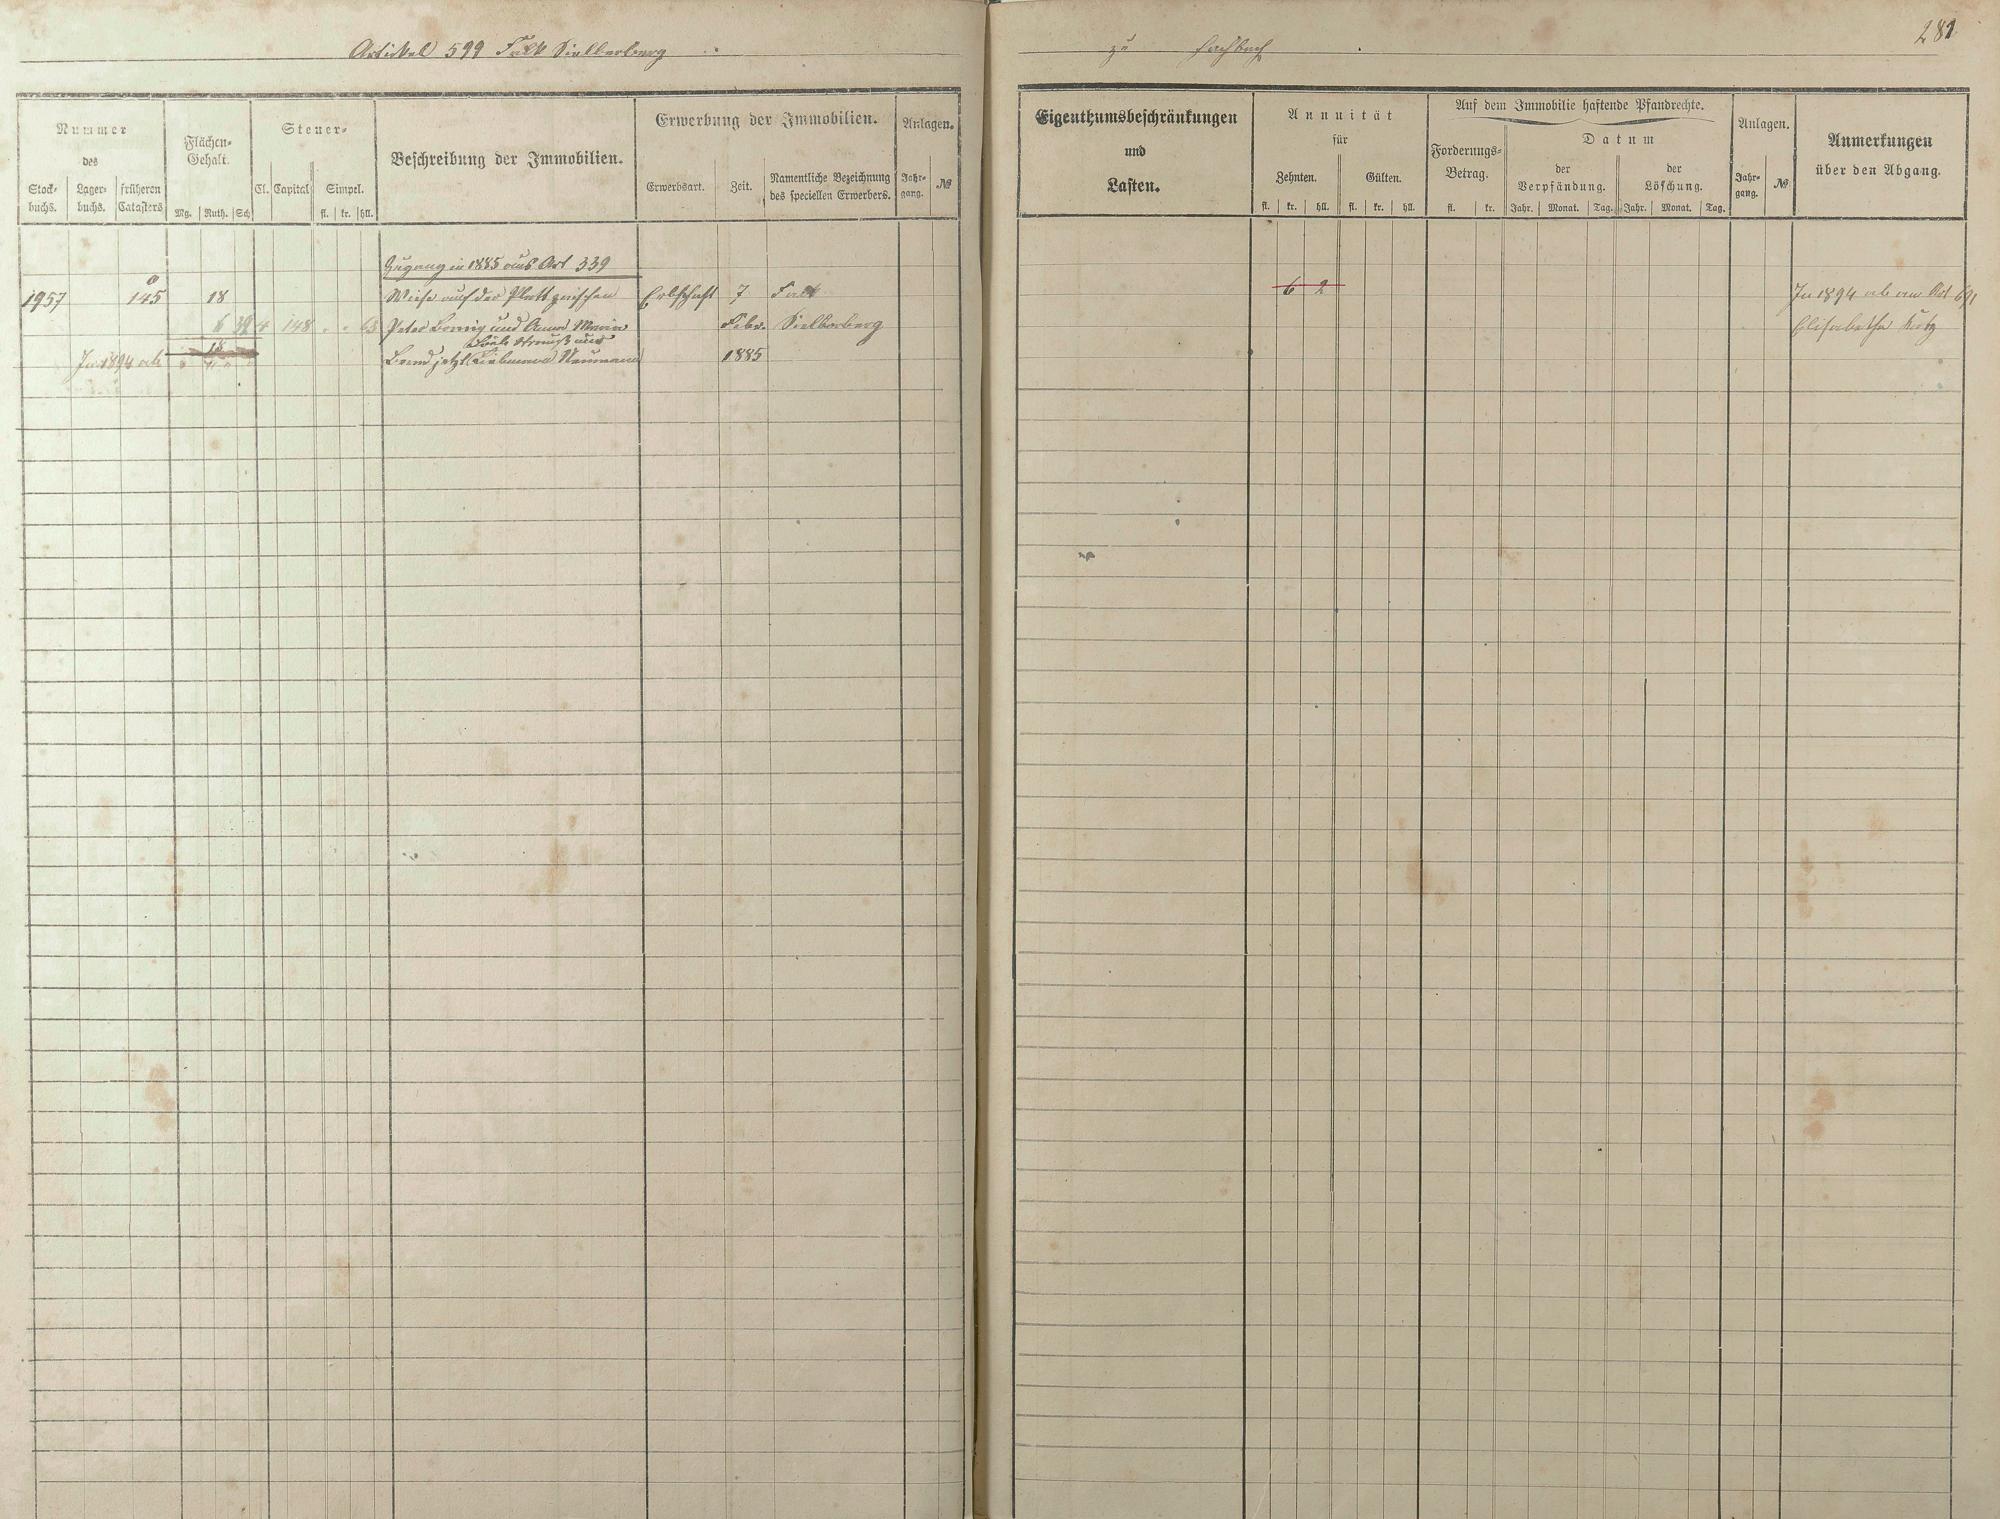 Artikel 599 Falk Silberberg
zu Fachbach
281
Nummer
des
Stock-
buchs.
Lager-
buchs.
früheren
Catasters
Flächen-
Gehalt.
Mg. Ruth. Sch.
Steuer-
Cl. Capital. Simpel.
fl. kr. hll.
Beschreibung der Immobilien.
Erwerbung der Immobilien.
Erwerbsart. Zeit.
Namentliche Bezeichnung
des speciellen Erwerbers.
Anlagen.
Jahr-
gang.
№
Eigenthumsbeschränkungen
und
Lasten.
Annuität
für
Zehnten. Gülten.
fl. kr. hll. fl. kr. hll.
Auf dem Immobilie haftende Pfandrechte.
Forderungs-
Betrag.
fl. kr.
Datum
der
Verpfändung.
der
Löschung.
Jahr. Monat. Tag. Jahr. Monat. Tag.
Anlagen.
Jahr-
gang.
№
Anmerkungen
über den Abgang.
Zugang in 1885 aus Art 339
1957 145 18 Wiese auf der Platt zwischen Erbschaft 7 Falk 6 2 In 1894 ab an Art 691
6 39 4 148 63 Peter Bornig und Anna Maria Febr. Silberberg Elisabetha
18
In 1894 ab jetzt Liebmann Neumann 1885